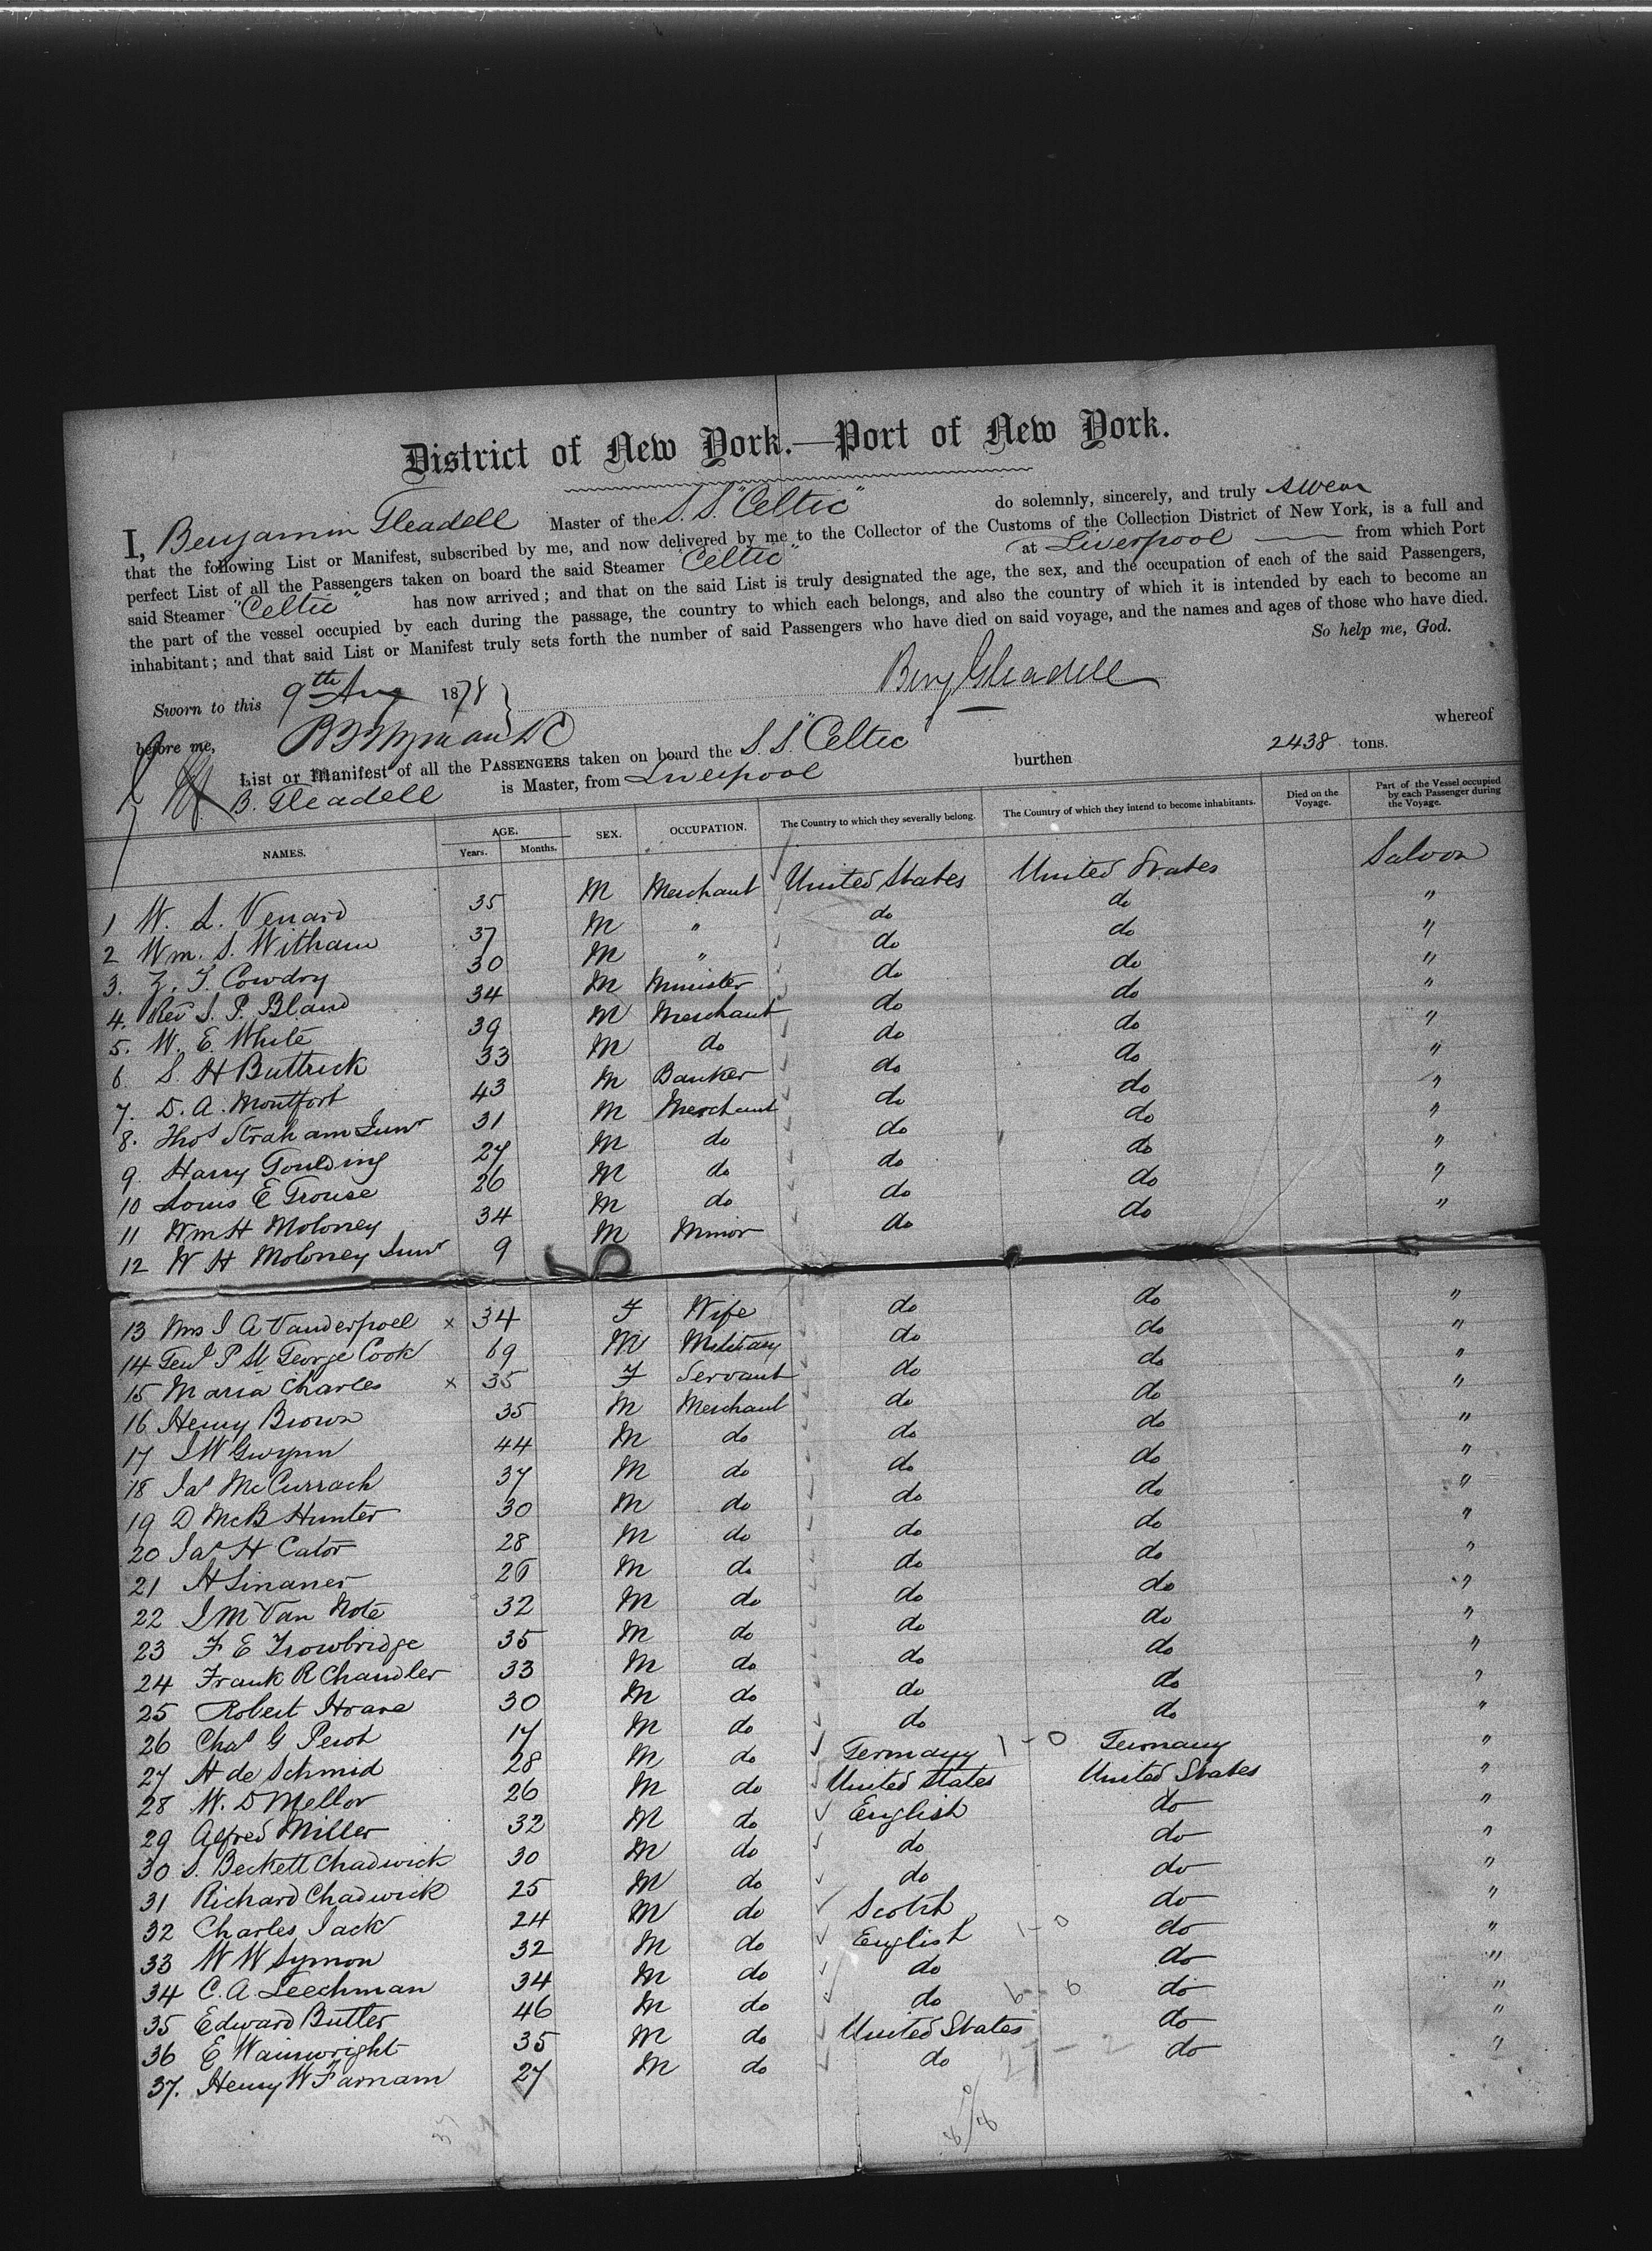 District of New York.—Port of New York.
I, Benjamin Gleadell Master of the S.S. "Celtic" do solemnly, sincerely, and truly swear
that the following List or Manifest, subscribed by me, and now delivered by me to the Collector of the Customs of the Collection District of New York, is a full and
perfect List of all the Passengers taken on board the said Steamer "Celtic" at Liverpool from which Port
said Steamer "Celtic" has now arrived; and that on the said List is truly designated the age, the sex, and the occupation of each of the said Passengers,
the part of the vessel occupied by each during the passage, the country to which each belongs, and also the country of which it is intended by each to become an
inhabitant; and that said List or Manifest truly sets forth the number of said Passengers who have died on said voyage, and the names and ages of those who have died.
So help me, God.
Sworn to this 9th Aug 1878 Benj Gleadell
before me,
List or Manifest of all the PASSENGERS taken on board the S.S. "Celtic" whereof
B. Gleadell is Master, from Liverpool burthen 2438 tons.
NAMES. AGE. Years. Months. SEX. OCCUPATION. The Country to which they severally belong. The Country of which they intend to become inhabitants. Died on the Voyage. Part of the Vessel occupied by each Passenger during the Voyage.
1 W. L. Venard 35 M Merchant United States United States Saloon
2 Wm. S. Witham 37 M " do do "
3. Z. T. Cowdry 30 M " do do "
4. Rev S. P. Bland 34 M Minister do do "
5. W. E. White 39 M Merchant do do "
6. S. H Buttrick 33 M do do do "
7. D. A. Montfort 43 M Banker do do "
8. Thos Straham Junr 31 M Merchant do do "
9. Harry Goulding 27 M do do do "
10 Louis E Grouse 26 M do do do "
11 Wm H Moloney 34 M do do do "
12 W H Moloney Junr 9 M Minor do do "
13 Mrs J A Vanderpoel x 34 F Wife do do "
14 Genl P St George Cook 69 M Military do do "
15 Maria Charles x 35 F Servant do do "
16 Henry Brown 35 M Merchant do do "
17 J W Gwynn 44 M do do do "
18 Jas McCurrach 37 M do do do "
19 D McB Hunter 30 M do do do "
20 Jas H Cator 28 M do do do "
21 H Sinaner 26 M do do do "
22 J M Van Note 32 M do do do "
23 F E Trowbridge 35 M do do do "
24 Frank R Chandler 33 M do do do "
25 Robert Hoare 30 M do do do "
26 Chas G Perot 17 M do do do "
27 H de Schmid 28 M do Germany 1-0 Germany "
28 W. D Mellor 26 M do United States United States "
29 Alfred Miller 32 M do English do "
30 S. Beckett Chadwick 30 M do do do "
31 Richard Chadwick 25 M do do do "
32 Charles Jack 24 M do Scotch do "
33 W W Symon 32 M do English 1-0 do "
34 C. A. Leechman 34 M do do do "
35 Edward Butler 46 M do do 6-6 do "
36 E Wainwright 35 M do United States do "
37. Henry W Farnam 27 M do do do "